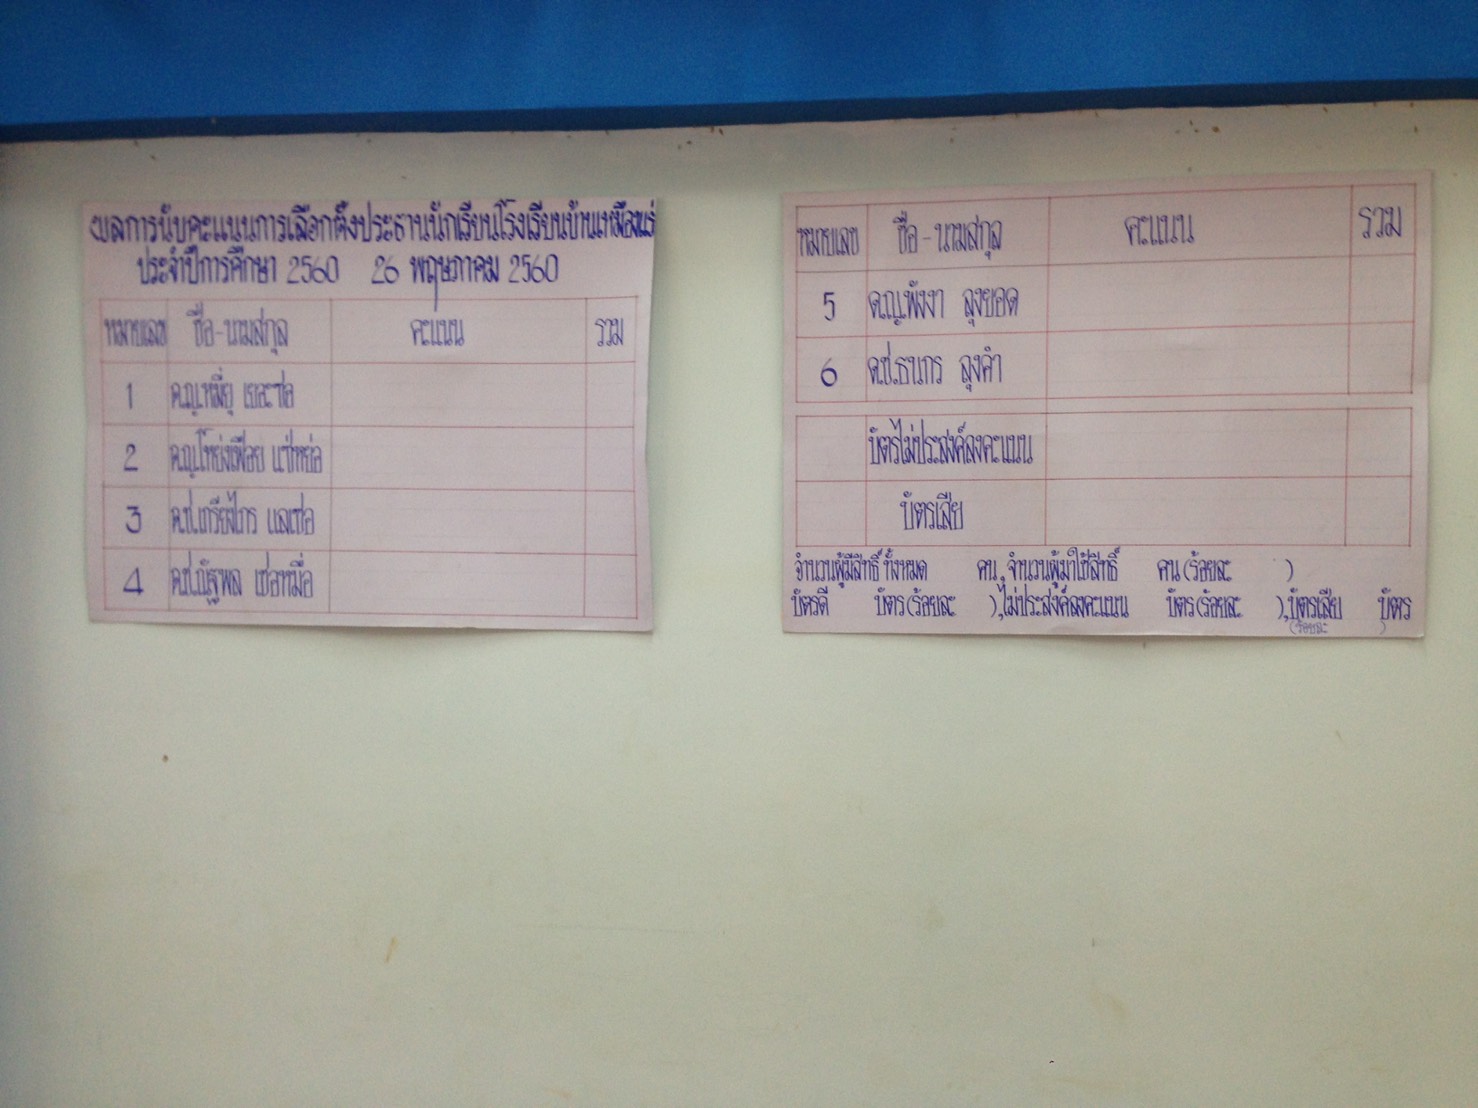 ผลการนับคะแนนการเลือกตั้งประธานนักเรียนโรงเรียนบ้านเหมืองแร่
ประจำปีการศึกษา 2560 26 พฤษภาคม 2560
หมายเลข ชื่อ-นามสกุล คะแนน รวม
1 ด.ญ.หมี่ยุ เยอะซ่อ
2 ด.ญ.โหย่งเฟื่อย แซ่หย่อ
3 ด.ช.เกรียงไกร แลเซ่อ
4 ด.ช.ณัฐพล เซ่อหมื่อ
หมายเลข ชื่อ-นามสกุล คะแนน รวม
5 ด.ญ.พังงา ลุงยอด
6 ด.ช.ธนกร ลุงคำ
บัตรไม่ประสงค์ลงคะแนน
บัตรเสีย
จำนวนผู้มีสิทธิ์ ทั้งหมด คน, จำนวนผู้มาใช้สิทธิ์ คน (ร้อยละ )
บัตรดี บัตร (ร้อยละ ), ไม่ประสงค์ลงคะแนน บัตร (ร้อยละ ), บัตรเสีย บัตร
(ร้อยละ )